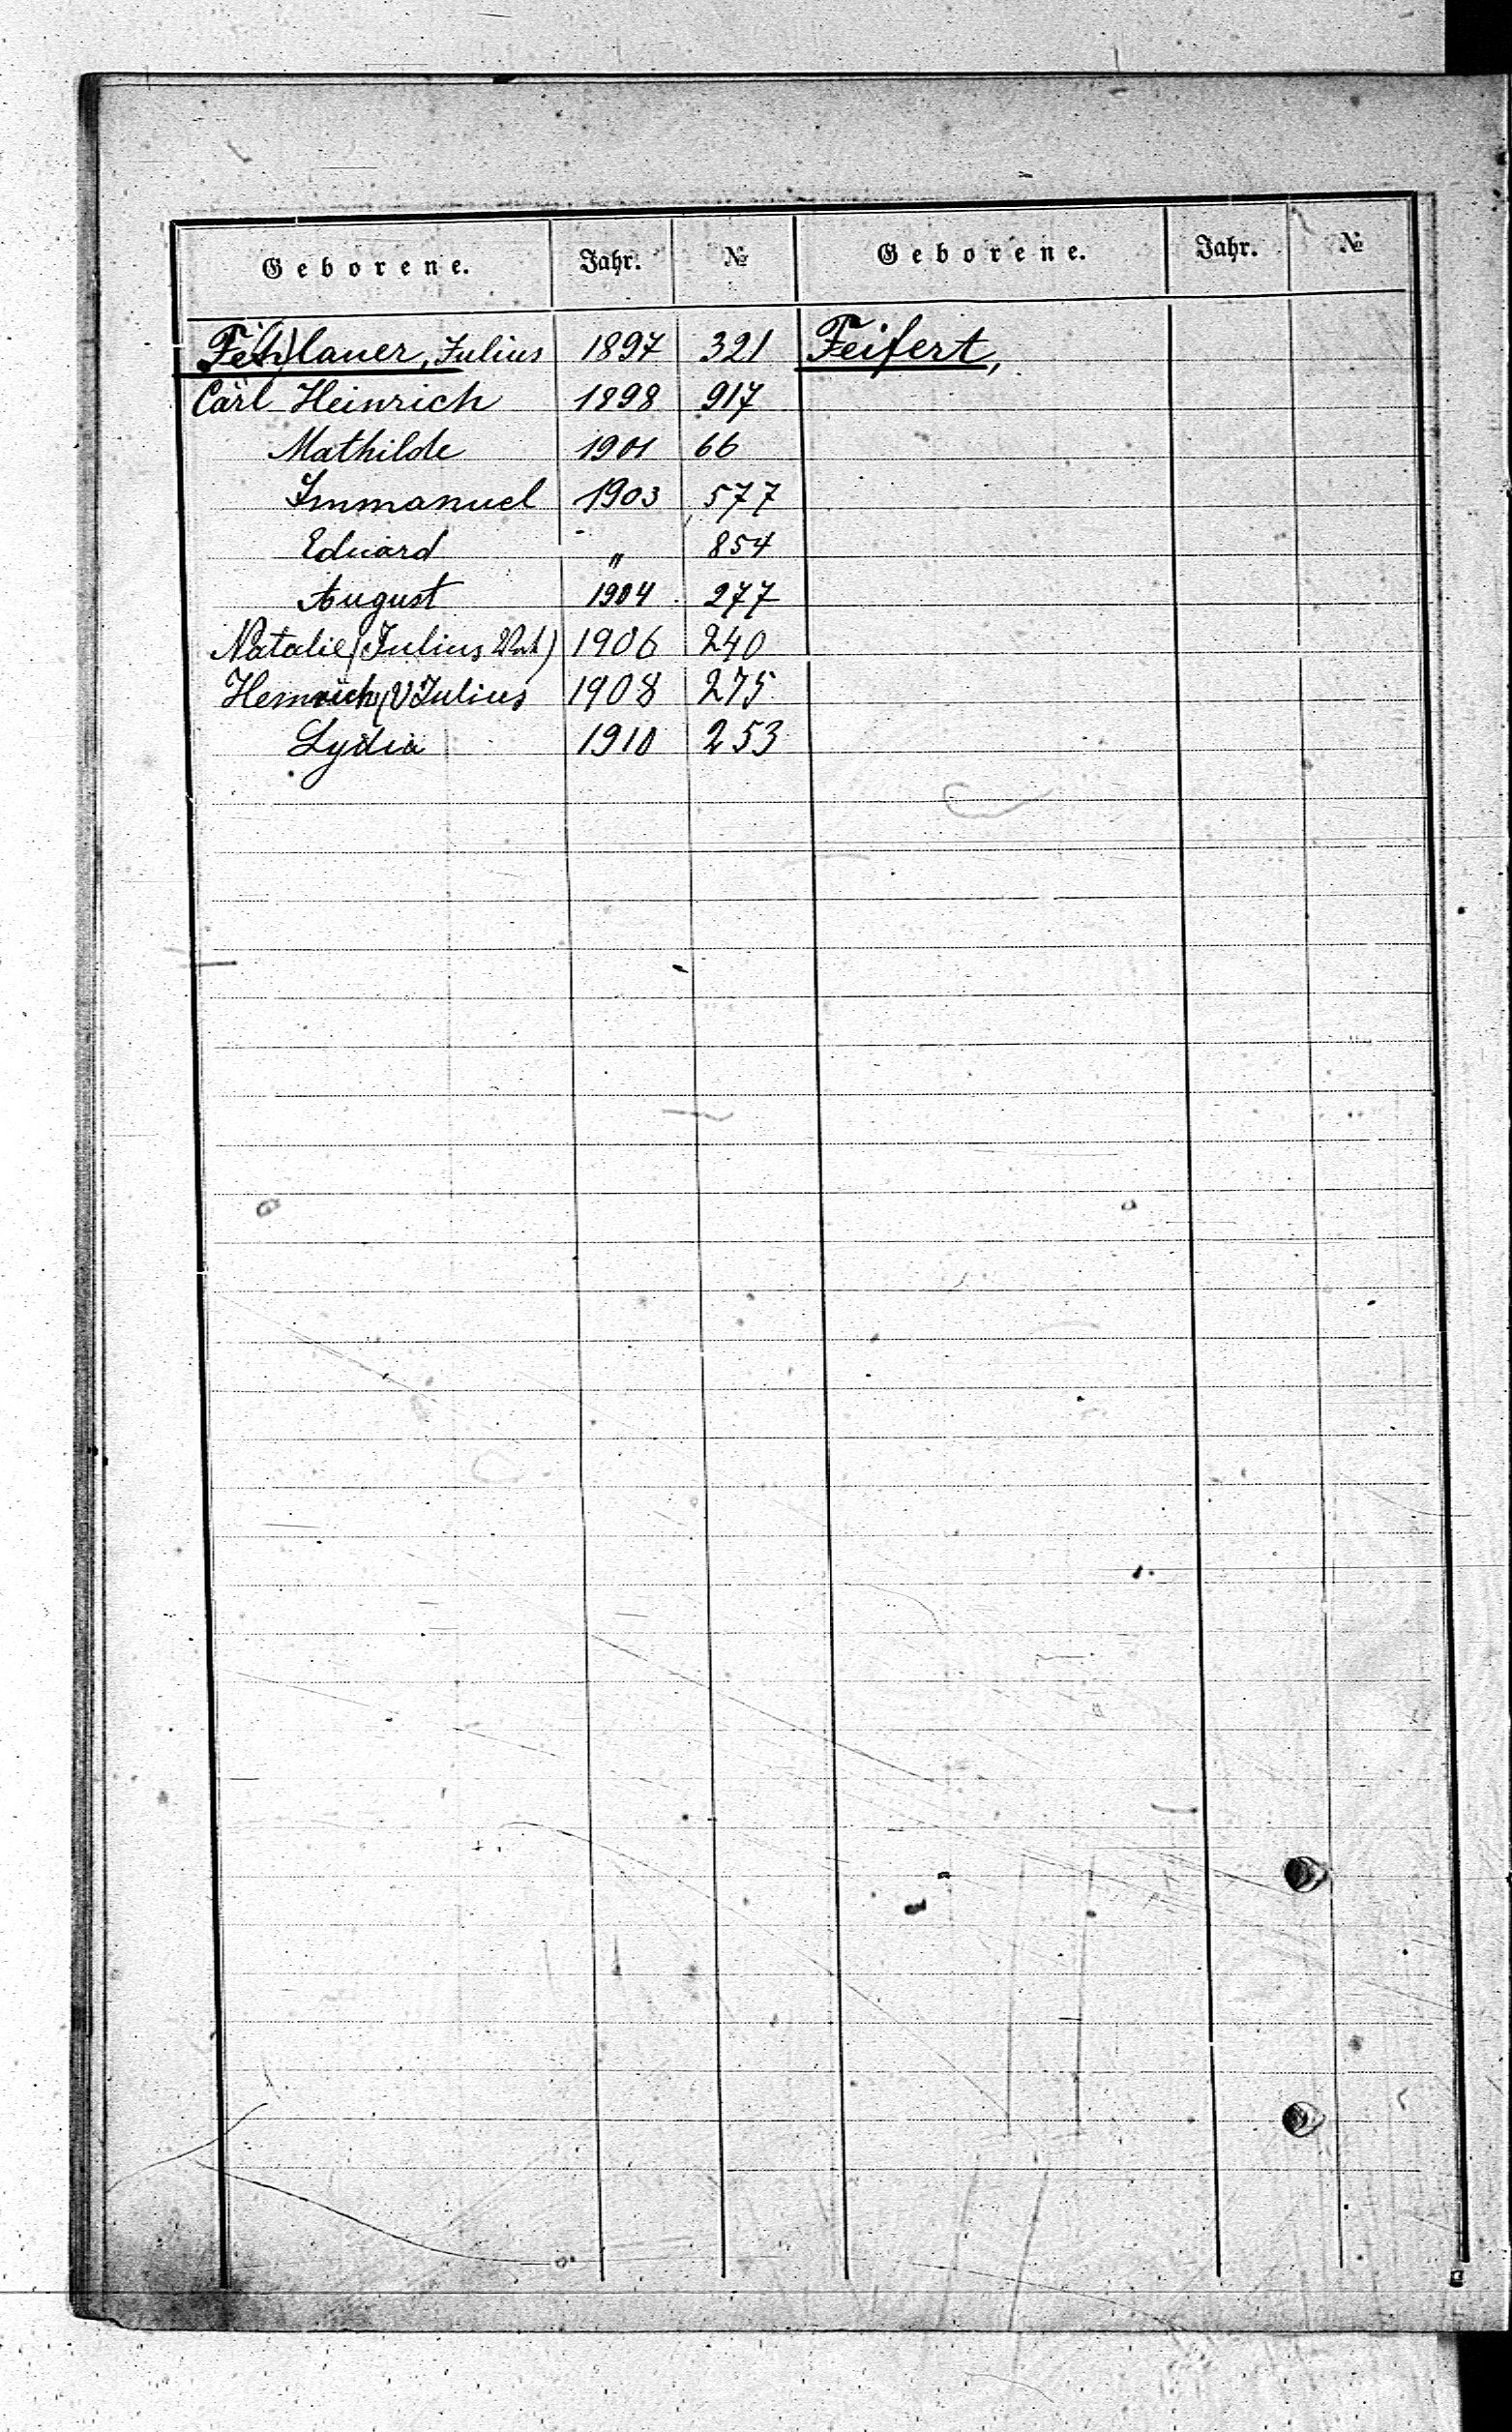 Geborene. Jahr. № Geborene. Jahr. №
Fe(h)lauer, Julius 1897 321 Feifert,
Carl Heinrich 1898 917
Mathilde 1901 66
Immanuel 1903 577
Eduard „ 854
August 1904 277
Natalie (Julius 1906 240
Heinrich (V Julius 1908 275
Lydia 1910 253